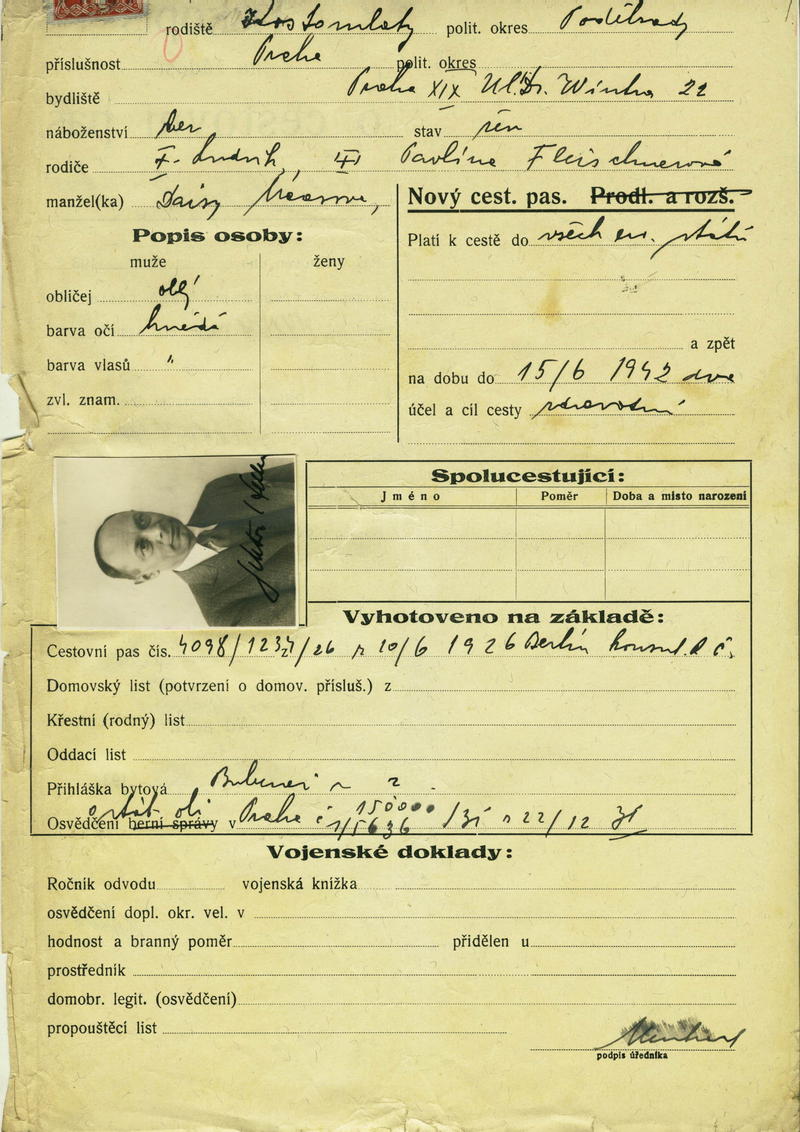 rodiště Kostomlaty polit. okres Poděbrady
příslušnost Praha polit. okres
bydliště Praha XIX Ul. Dr. Wintra 22
náboženství bez stav žen
rodiče F. Ludvík, M Pavlína Fleischnerová
manžel(ka) Daisy
Nový cest. pas. Prodl. a rozš.
Popis osoby:
muže ženy
Platí k cestě do všech ev. států
obličej
barva očí hnědá
barva vlasů "
zvl. znam.
a zpět
na dobu do 15/6 1942 dva
účel a cíl cesty
Spolucestující:
Jméno Poměr Doba a místo narození
Vyhotoveno na základě:
Cestovní pas čís. 4098/1237/26 z 10/6 1926 Berlín konsul. R Č.
Domovský list (potvrzení o domov. přísluš.) z
Křestní (rodný) list
Oddací list
Přihláška bytová Bubeneč
Osvědčení berní správy v Praha č 1/5636 /31 z 22/12 31
150000
Vojenské doklady:
Ročník odvodu vojenská knížka
osvědčení dopl. okr. vel. v
hodnost a branný poměr přidělen u
prostředník
domobr. legit. (osvědčení)
propouštěcí list
podpis úředníka